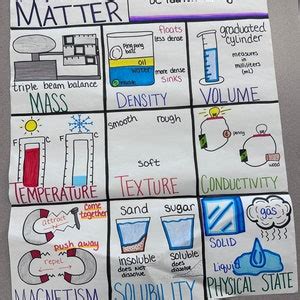 MATTER
triple beam balance
MASS
floats
less dense
ping pong
ball
oil
water
more dense
sinks
DENSITY
graduated
cylinder
measures
in
milliliters
(mL)
VOLUME
F
C
TEMPERATURE
smooth rough
soft
TEXTURE
penny
wood
CONDUCTIVITY
attract
come
together
push away
repel
MAGNETISM
sand sugar
insoluble
does not
dissolve
soluble
does
dissolve
SOLUBILITY
SOLID
gas
Liquid
PHYSICAL STATE